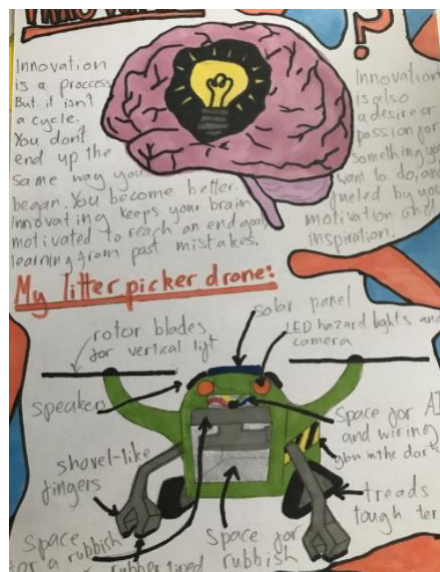 ?
Innovation
is a proccess
But it isn't
a cycle.
You don't
end up the
same way you
began. You become better.
Innovating keeps your brain
motivated to reach an end goal,
learning from past mistakes.
Innovation
is also
a desire or
passion for
something you
want to do, and
fueled by your
motivation and
inspiration.
My litter picker drone:
solar panel
rotor blades
for vertical lift
LED hazard lights and
camera
speakers
Space for AI
and wiring
glow in the dark
shovel-like
fingers
treads
tough
Space
for a rubbish
Space for
rubbish
rubber tined